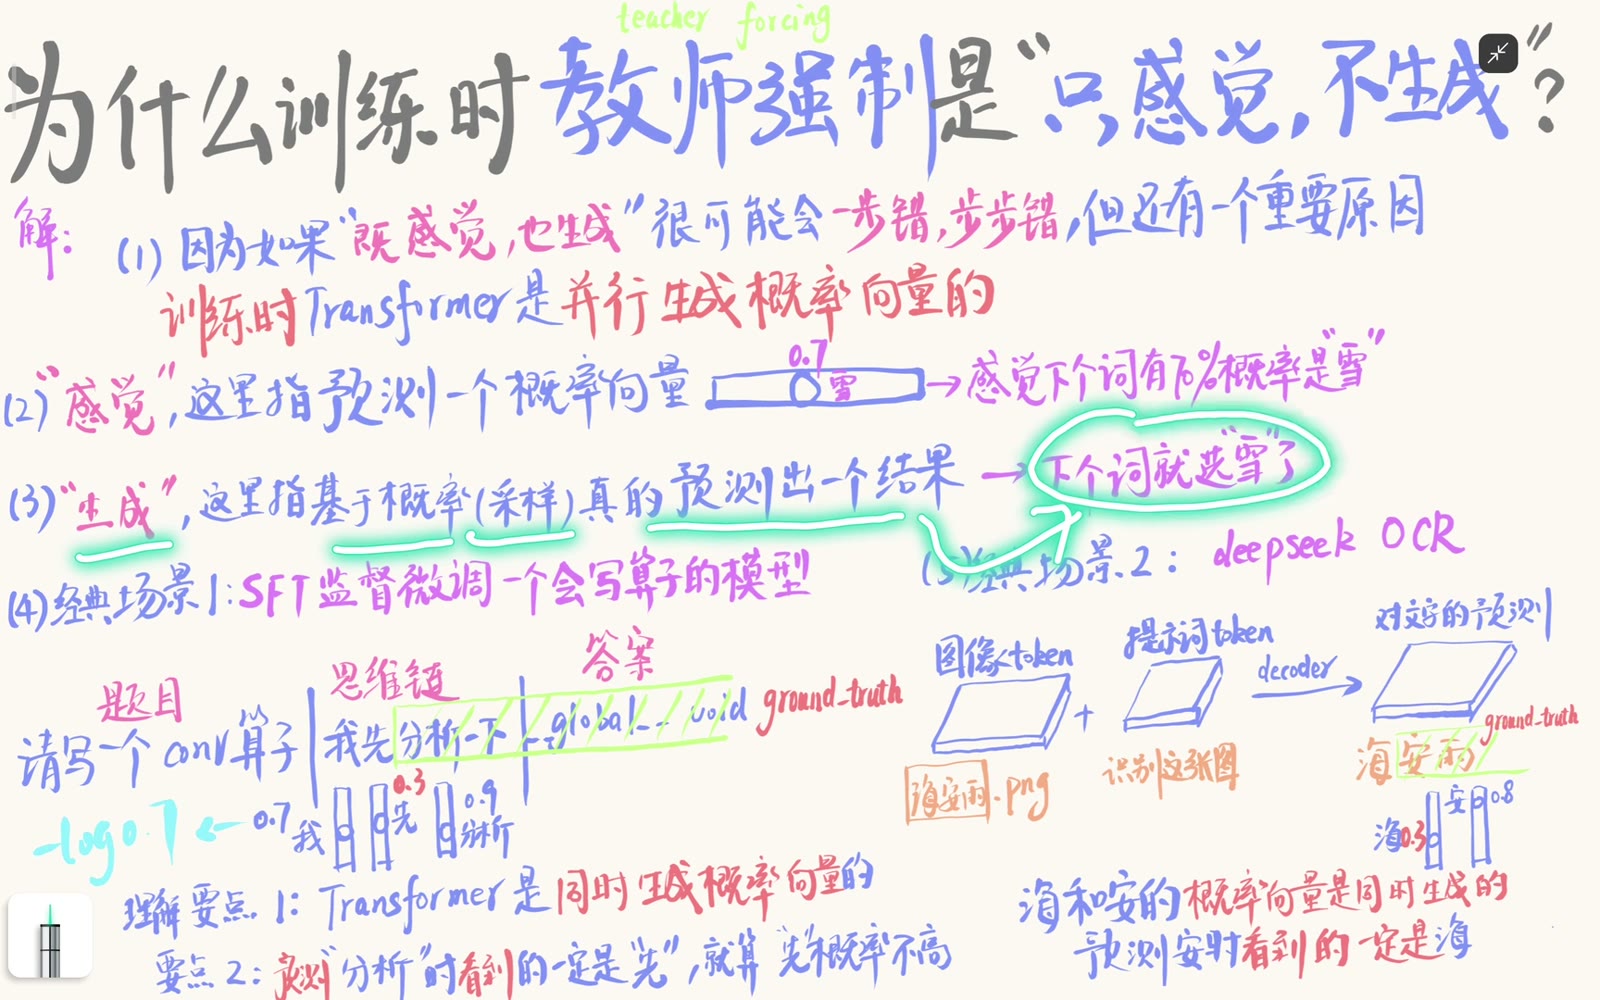 teacher forcing
为什么训练时教师强制是“只感觉,不生成”?
解:
(1) 因为如果“既感觉,也生成”很可能会一步错,步步错,但还有一个重要原因
训练时Transformer是并行生成概率向量的
(2)“感觉”,这里指预测一个概率向量 0.7 雪 →感觉下个词有70%概率是“雪”
(3)“生成”,这里指基于概率(采样)真的预测出一个结果 →下个词就选“雪”了
(4)经典场景1:SFT监督微调一个会写算子的模型
题目 思维链 答案
请写一个conv算子 | 我先分析一下 | __global__ void ground_truth
-log0.7 ← 0.7 我 0.3 先 0.9 分析
理解要点1: Transformer是同时生成概率向量的
要点2: 预测“分析”时看到的一定是“先”,就算“先”概率不高
(5)经典场景2: deepseek OCR
图像token + 提示词token decoder 对文字的预测
海安雨.png 识别这张图 海安雨 ground_truth
海0.3 安 0.8
海和安的概率向量是同时生成的
预测安时看到的一定是海